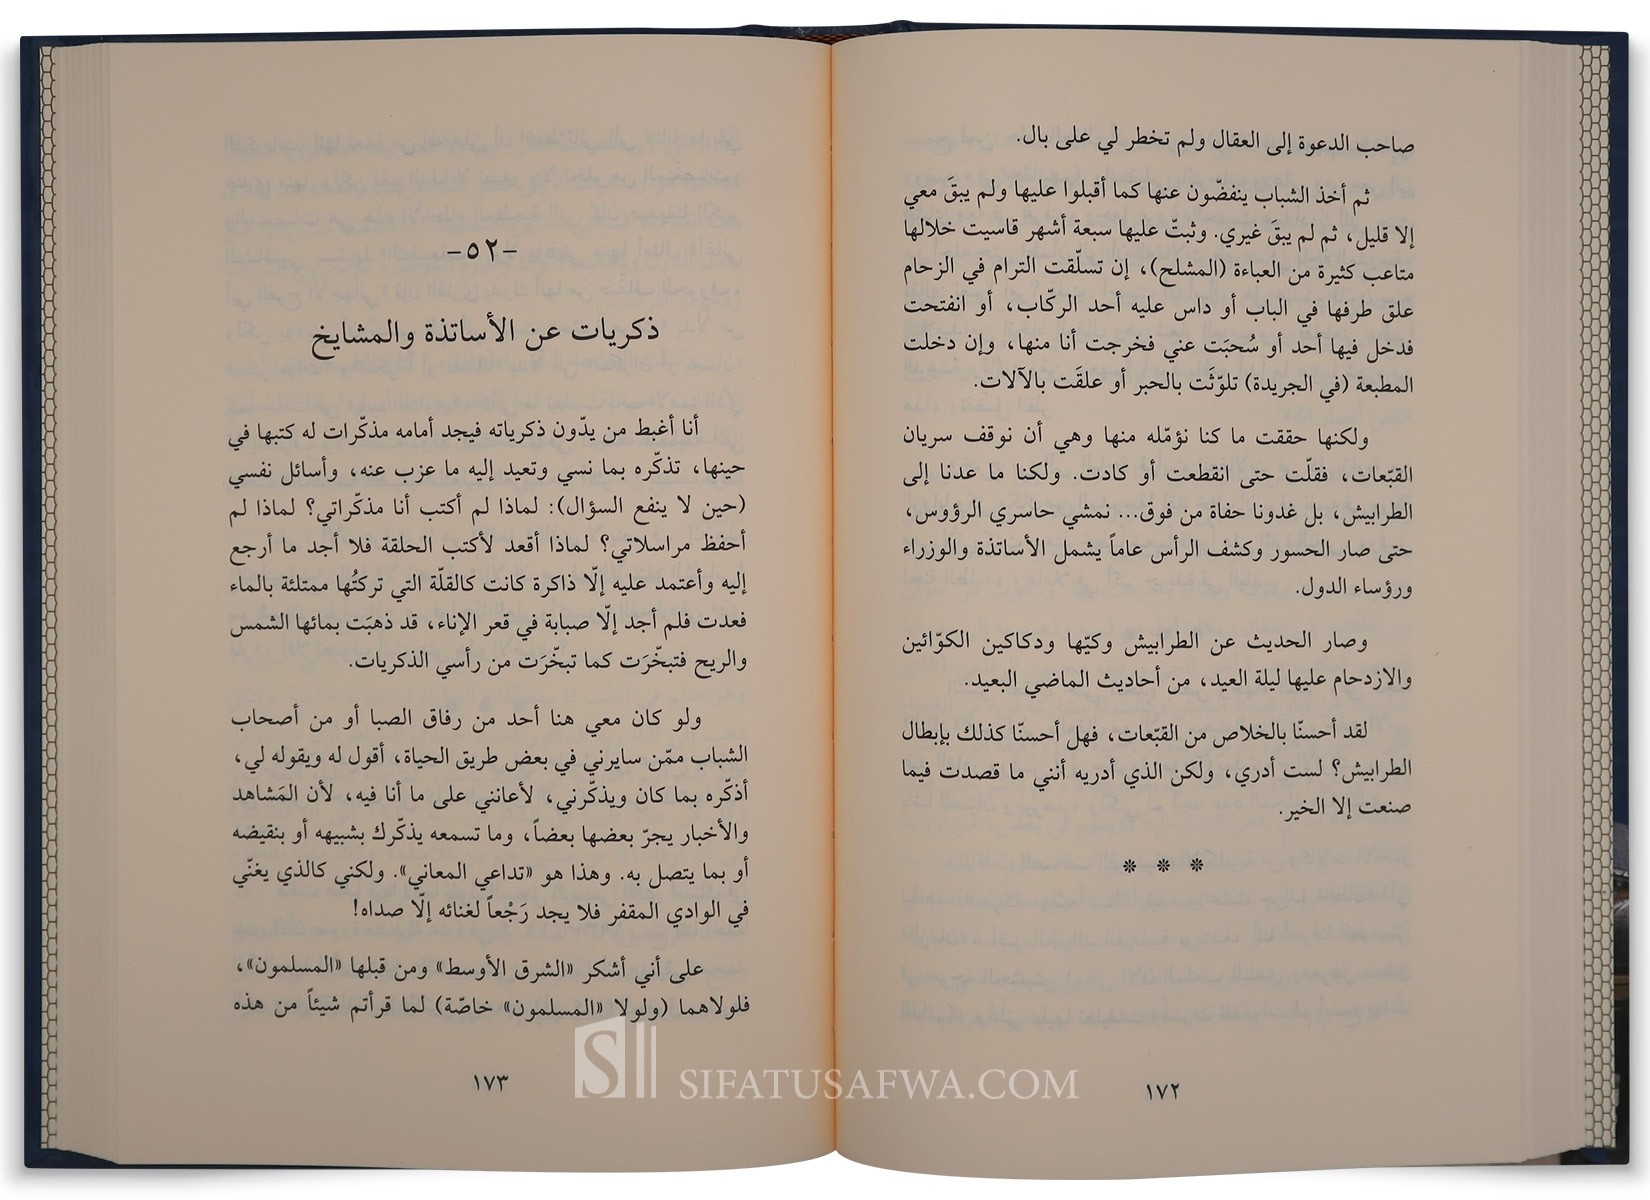 صاحب الدعوة إلى العقال ولم تخطر لي على بال.
ثم أخذ الشباب ينفضّون عنها كما أقبلوا عليها ولم يبقَ معي
إلا قليل، ثم لم يبقَ غيري. وثبتّ عليها سبعة أشهر قاسيت خلالها
متاعب كثيرة من العباءة (المشلح)، إن تسلّقت الترام في الزحام
علق طرفها في الباب أو داس عليه أحد الركّاب، أو انفتحت
فدخل فيها أحد أو سُحبَت عني فخرجت أنا منها، وإن دخلت
المطبعة (في الجريدة) تلوّثَت بالحبر أو علقَت بالآلات.
ولكنها حققت ما كنا نؤمّله منها وهي أن نوقف سريان
القبّعات، فقلّت حتى انقطعت أو كادت. ولكنا ما عدنا إلى
الطرابيش، بل غدونا حفاة من فوق... نمشي حاسري الرؤوس،
حتى صار الحسور وكشف الرأس عاماً يشمل الأساتذة والوزراء
ورؤساء الدول.
وصار الحديث عن الطرابيش وكيّها ودكاكين الكوّائين
والازدحام عليها ليلة العيد، من أحاديث الماضي البعيد.
لقد أحسنّا بالخلاص من القبّعات، فهل أحسنّا كذلك بإبطال
الطرابيش؟ لست أدري، ولكن الذي أدريه أنني ما قصدت فيما
صنعت إلا الخير.
* * *
١٧٢
-٥٢-
ذكريات عن الأساتذة والمشايخ
أنا أغبط من يدّون ذكرياته فيجد أمامه مذكّرات له كتبها في
حينها، تذكّره بما نسي وتعيد إليه ما عزب عنه، وأسائل نفسي
(حين لا ينفع السؤال): لماذا لم أكتب أنا مذكّراتي؟ لماذا لم
أحفظ مراسلاتي؟ لماذا أقعد لأكتب الحلقة فلا أجد ما أرجع
إليه وأعتمد عليه إلّا ذاكرة كانت كالقلّة التي تركتُها ممتلئة بالماء
فعدت فلم أجد إلّا صبابة في قعر الإناء، قد ذهبَت بمائها الشمس
والريح فتبخّرَت كما تبخّرَت من رأسي الذكريات.
ولو كان معي هنا أحد من رفاق الصبا أو من أصحاب
الشباب ممّن سايرني في بعض طريق الحياة، أقول له ويقوله لي،
أذكّره بما كان ويذكّرني، لأعانني على ما أنا فيه، لأن المَشاهد
والأخبار يجرّ بعضها بعضاً، وما تسمعه يذكّرك بشبيهه أو بنقيضه
أو بما يتصل به. وهذا هو «تداعي المعاني». ولكني كالذي يغنّي
في الوادي المقفر فلا يجد رَجْعاً لغنائه إلّا صداه!
على أني أشكر «الشرق الأوسط» ومن قبلها «المسلمون»،
فلولاهما (ولولا «المسلمون» خاصّة) لما قرأتم شيئاً من هذه
١٧٣
SIFATUSAFWA.COM